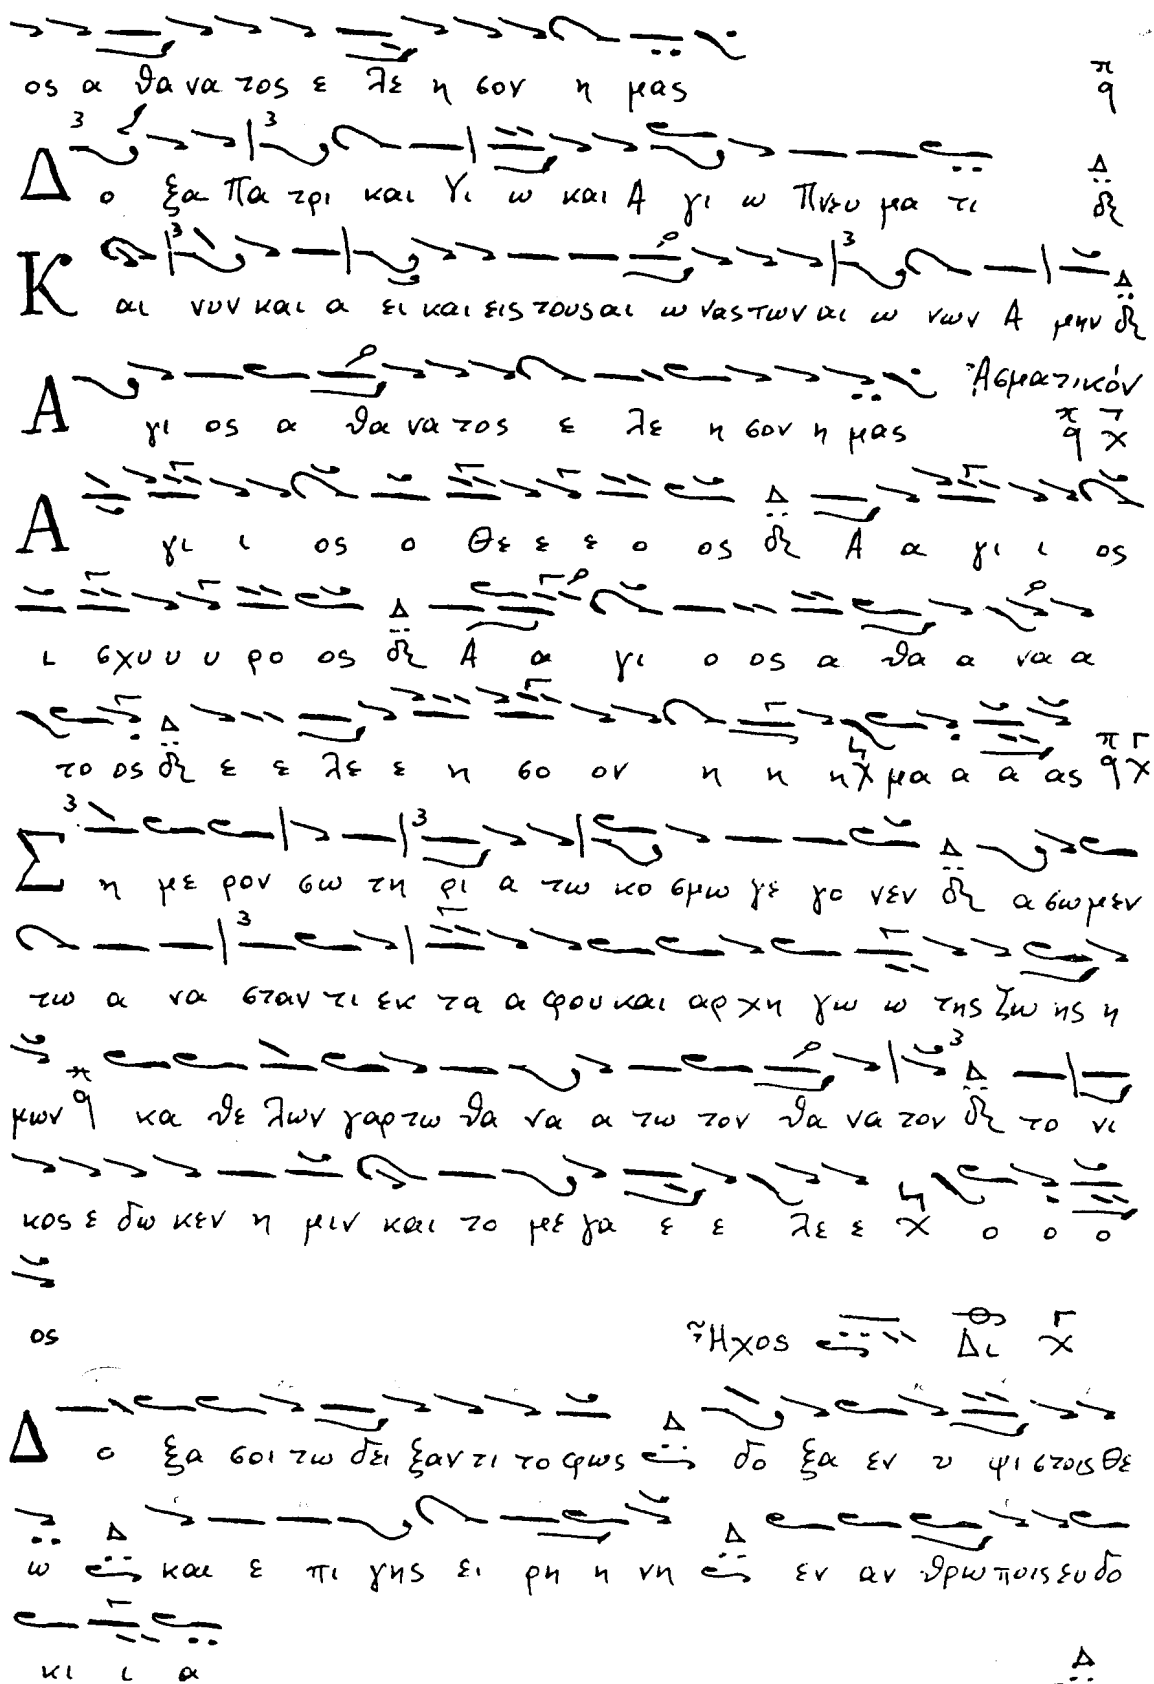 ος α θα να τος ε λε η σον η μας
Δ ο ξα Πα τρι και Υι ω και Α γι ω Πνευ μα τι
Κ αι νυν και α ει και εις τους αι ω νας των αι ω νων Α μην
Ἀσματικόν
Α γι ος α θα να τος ε λε η σον η μας
Α γι ι ος ο Θε ε ε ο ος Α α γι ι ος
ι σχυ υ υ ρο ος Α α γι ο ος α θα α να α
το ος ε ε λε ε η σο ον η η η μα α α ας
Σ η με ρον σω τη ρι α τω κο σμω γε γο νεν α σω μεν
τω α να σταν τι εκ τα α φου και αρ χη γω ω της ζω ης η
μων κα θε λων γαρ τω θα να α τω τον θα να τον το νι
κος ε δω κεν η μιν και το με γα ε ε λε ε ο ο ο
ος
Ἦχος Δι
Δ ο ξα σοι τω δει ξαν τι το φως δο ξα εν υ ψι στοις Θε
ω και ε πι γης ει ρη η νη εν αν θρω ποις ευ δο
κι ι α